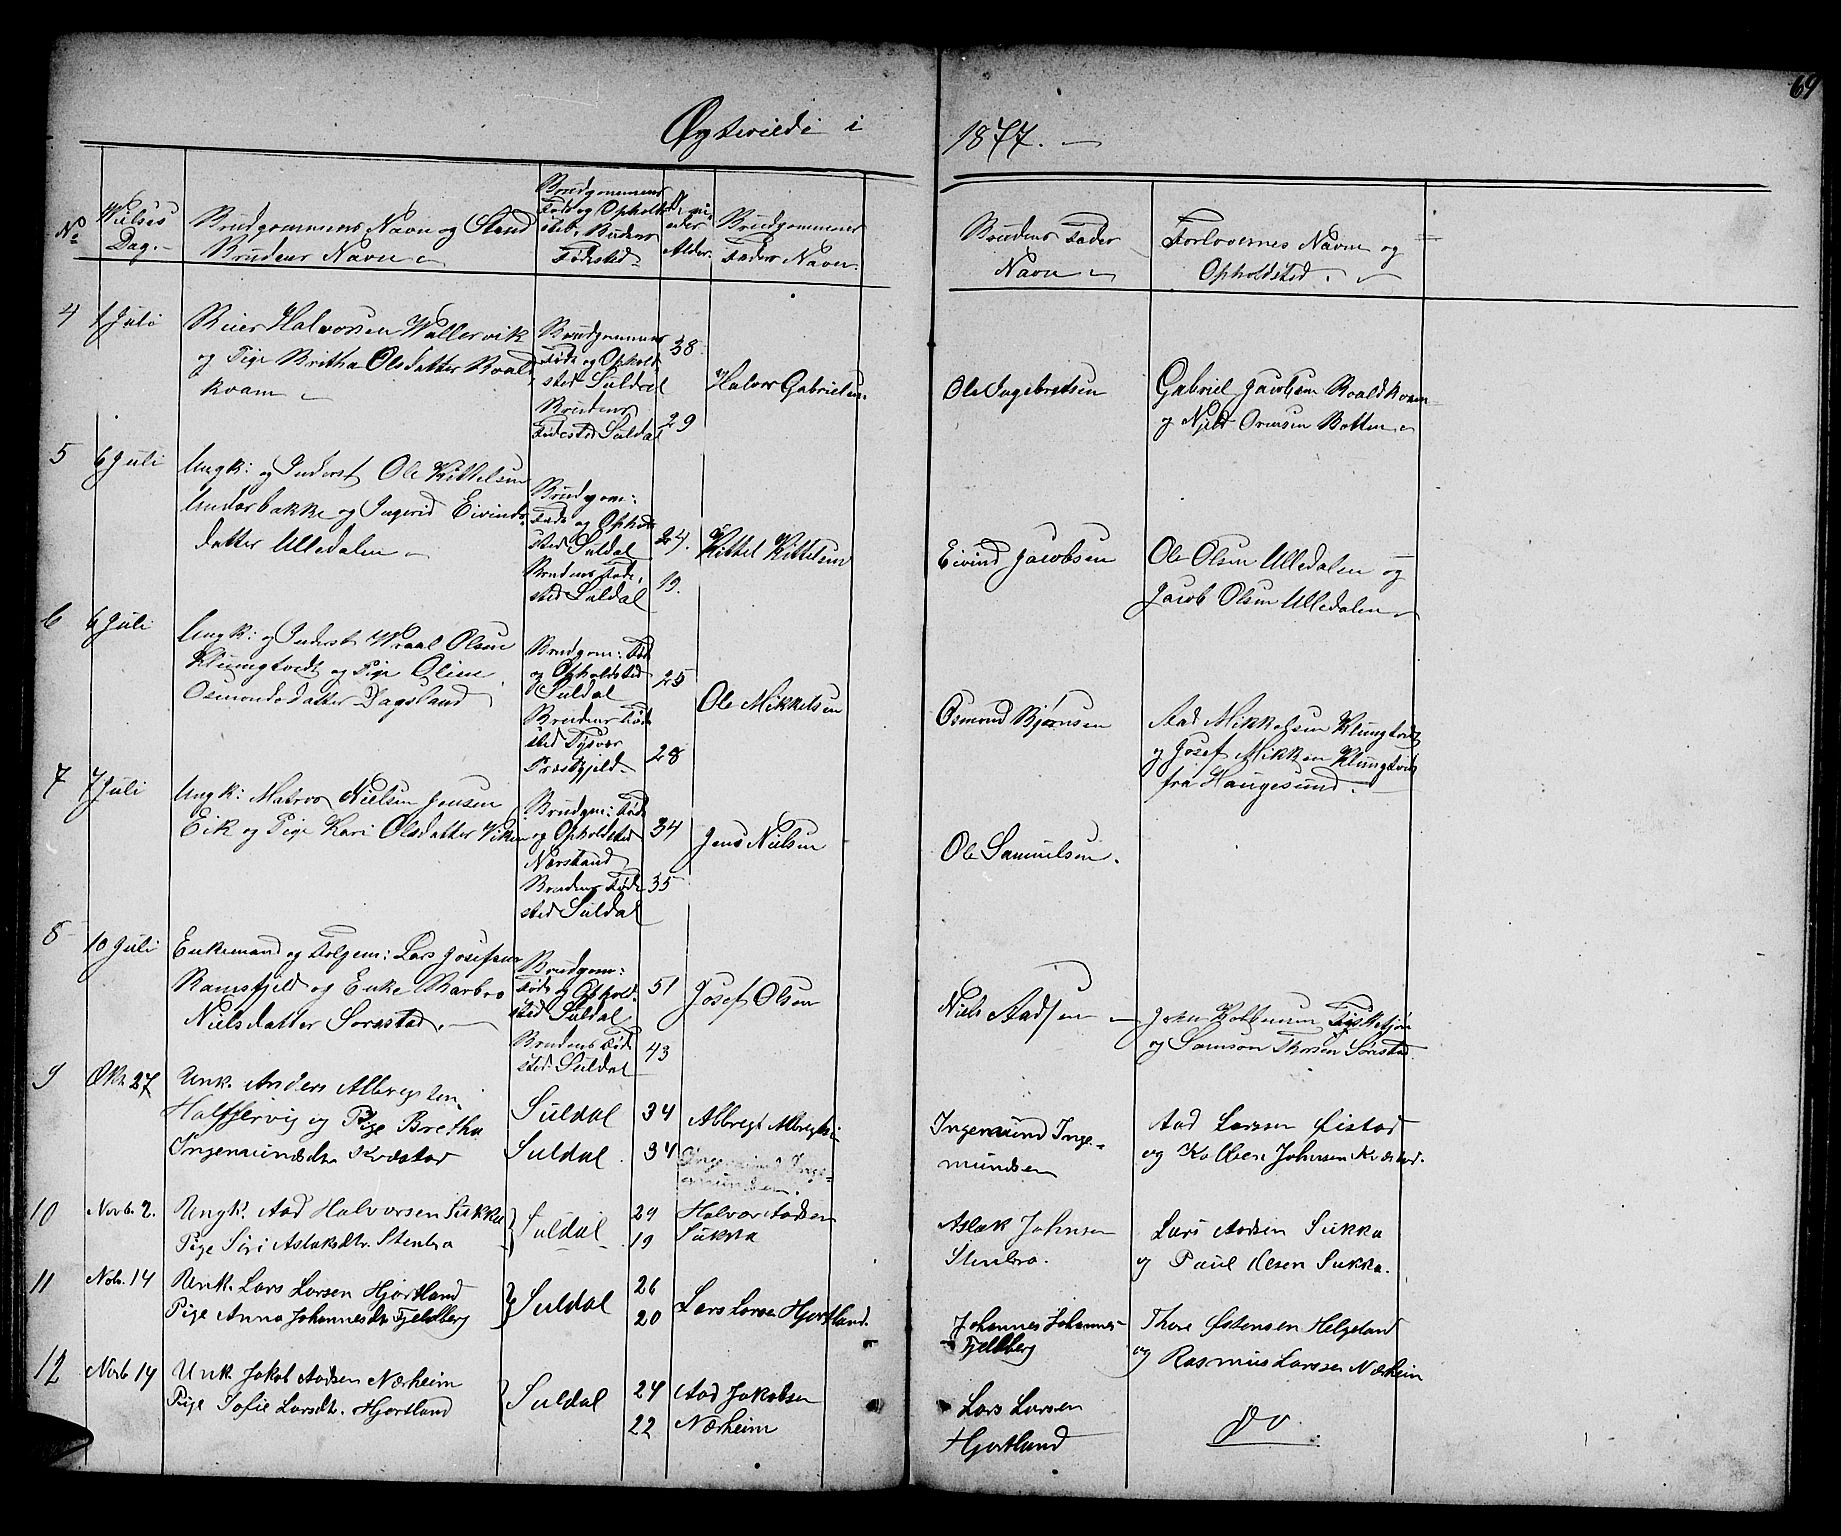 69
Ægteviede i 1877. —
No
Vielses
Dag. —
Brudgommens Navn og Stand
Brudens Navn
Brudgommens
Føde og Opholds
sted, Brudens
Fødested
Alder.
Brudgommens
Faders Navn.
Brudens Fader
Navn
Forlovernes Navn og
Opholdsted.
4
1 Juli
Reier Halvorsen Wallervik
og Pige Britha Olsdatter Roald
kvam
Brudgommens
Føde og Ophold
sted Suldal
Brudens
Fødested Suldal
38.
29
Halvor Gabrielsen
Ole Ingebretsen
Gabriel Jacobsen Roaldkvam
og Njeld Ormsen Botten
5
6 Juli
Ungk: og Inderst Ole Kittelsen
Underbakke og Ingerid Eivinds
datter Ulledalen
Brudgom:
Føde og Ophold
sted Suldal
Brudens Føde
sted Suldal
24.
19.
Kittel Kittelsen
Eivind Jacobsen
Ole Olsen Ulledalen og
Jacob Olsen Ulledalen
6
6 Juli
Ungk: og Inderst Wraal Olsen
Klungtvedt og Pige Oline
Osmondsdatter Dagsland
Brudgom: Føde
og Opholdsted
Suldal
Brudens Føde
sted Tysvær
Præstgjeld
25
28
Ole Mikkelsen
Osmond Bjørnsen
Aad Mikkelsen Klungtvedt
og Josef Mikken Klungtvedt
fra Haugesund
7
7 Juli
Ungk: Matros Nielsen Jensen
Eik og Pige Kari Olsdatter Viken
Brudgm: Føde
og Opholdsted
Nærstrand
Brudens Føde
sted Suldal
34
35
Jens Nielsen
Ole Samuelsen.
8
10 Juli
Enkemand og Folgem: Lars Josefsen
Ramsfjeld og Enke Barbro
Nielsdatter Sørestad.
Brudgom:
Føde og Ophold
sted Suldal
Brudens Føde
sted Suldal
51
43
Josef Olsen
Niels Aadsen
John Kolbensen
og Samson Thorsen Sørestad
9
Okt 27
Unk. Anders Albregtsen
og Pige Bretha
Ingemundsdtr. Kvæstad
Suldal
Suldal
34
34
Albregt Albregtsen
Ingemund Inge-
mundsen.
Ingemund Inge-
mundsen
Aad Larsen Eistad
og Kolbein Johnsen Kvæstad.
10
Novb. 2.
Ungk. Aad Halvorsen Sukka
Pige Siri Aslaksdtr. Stenbro
Suldal
29
19
Halvor Aadsen
Sukka
Aslak Johnsen
Stenbro.
Lars Aadsen Sukka
og Paul Olsen Sukka.
11
Nob. 14
Unk. Lars Larsen Hjortland
Pige Anna Johannesdtr Fjeldberg
Suldal
26
20
Lars Larsen Hjortland.
Johannes Johannes-
Fjeldberg
Thore Østensen Helgeland
og Rasmus Larsen Nærheim
12
Novb 14
Unk. Jakob Aadsen Nærheim
Pige Sofie Larsdtr. Hjortland
Suldal
24
22
Aad Jakobsen
Nærheim
Lars Larsen
Hjortland
Do.